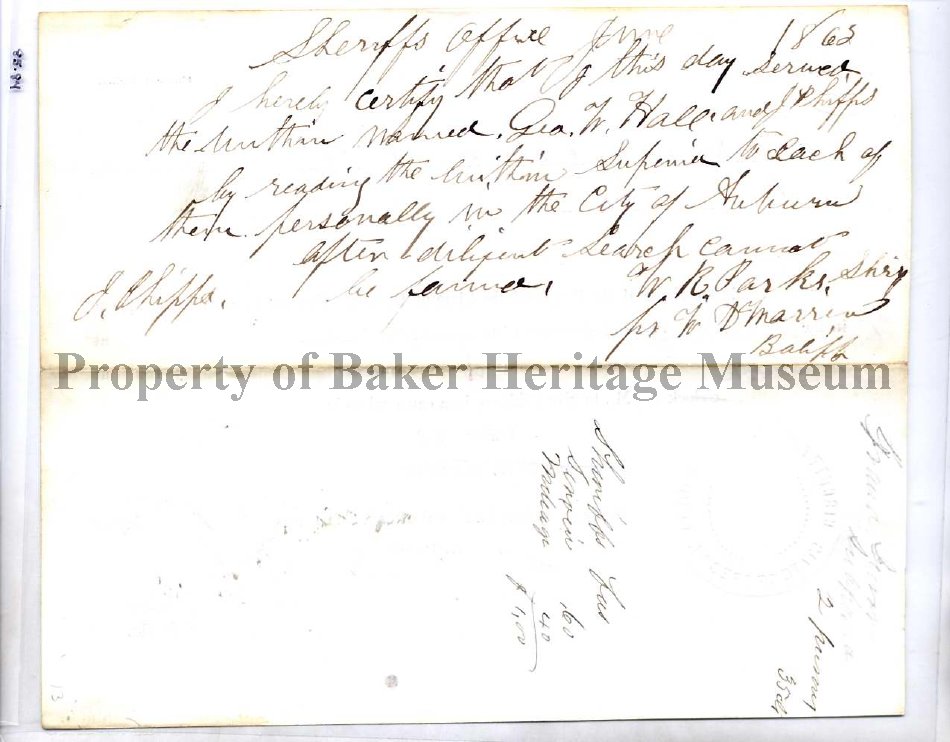 Sheriffs Office June 1863
I hereby certify that I this day served
the within named, Geo. W. Hall and J Phipps
by reading the within Supenia to each of
them personally in the City of Auburn
after diligent search cannot
J. Phipps. be found, W R Parks, Shriff
pr W D Marren
Baliff
Property of Baker Heritage Museum
Sheriffs Fees
Servin 60
Mileage 40
$ 1,00
Grand
2 persons